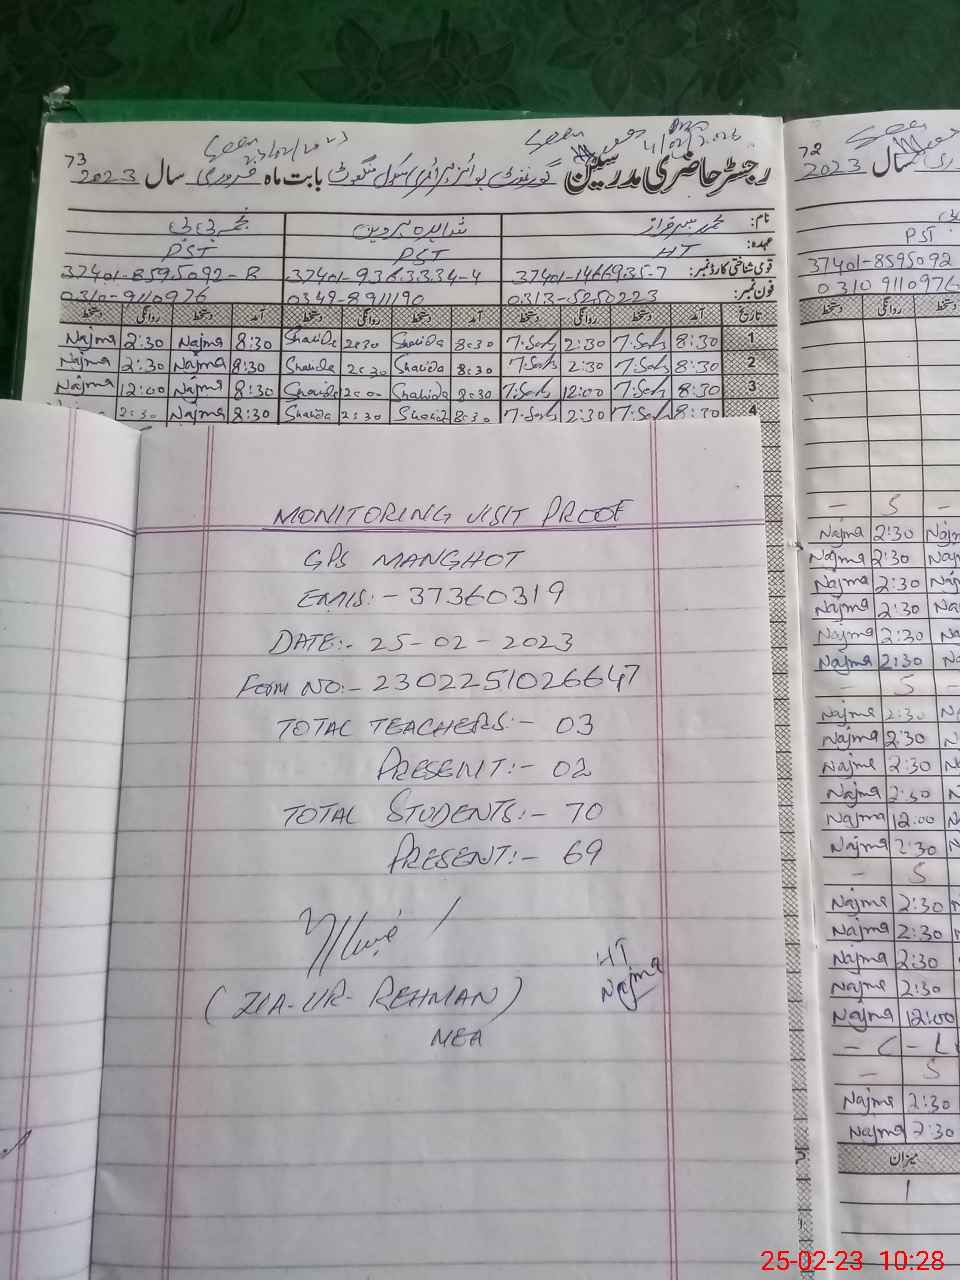 73
Seen
Seen
2023 رجسٹر حاضری مدرسین گورنمنٹ بوائز پرائمری سکول منگوٹ بابت ماہ فروری سال
نام:
PST PST HT عہدہ:
37401-8595092-8 37401-9363334-4 37401-1466935-7 قومی شناختی کارڈ نمبر:
0310-9110976 0349-8911190 0313-5250223 فون نمبر:
دستخط روانگی دستخط آمد دستخط روانگی دستخط آمد دستخط روانگی دستخط آمد تاریخ
Najma 2:30 Najma 8:30 Shahida 2:30 Shahida 8:30 2:30 8:30 1
Najma 2:30 Najma 8:30 Shahida 2:30 Shahida 8:30 2:30 8:30 2
Najma 12:00 Najma 8:30 Shahida 12:00 Shahida 8:30 12:00 8:30 3
2:30 Najma 8:30 Shahida 2:30 Shahida 8:30 2:30 8:30 4
MONITORING VISIT PROOF
GPS MANGHOT
EMIS:- 37360319
DATE:- 25-02-2023
FORM NO:- 2302251026647
TOTAL TEACHERS:- 03
PRESENT:- 02
TOTAL STUDENTS:- 70
PRESENT:- 69
(ZIA-UR-REHMAN)
MEA
HT
Najma
72
Seen
2023 سال
PST
37401-8595092
0310 9110976
دستخط روانگی دستخط
- S -
Najma 2:30
Najma 2:30
Najma 2:30
Najma 2:30
Najma 2:30
Najma 2:30
- S -
Najma 2:30
Najma 2:30
Najma 2:30
Najma 2:30
Najma 12:00
Najma 2:30
- S
Najma 2:30
Najma 2:30
Najma 2:30
Najma 2:30
Najma 12:00
- C - L
- S
Najma 2:30
Najma 2:30
میزان
1
25-02-23 10:28